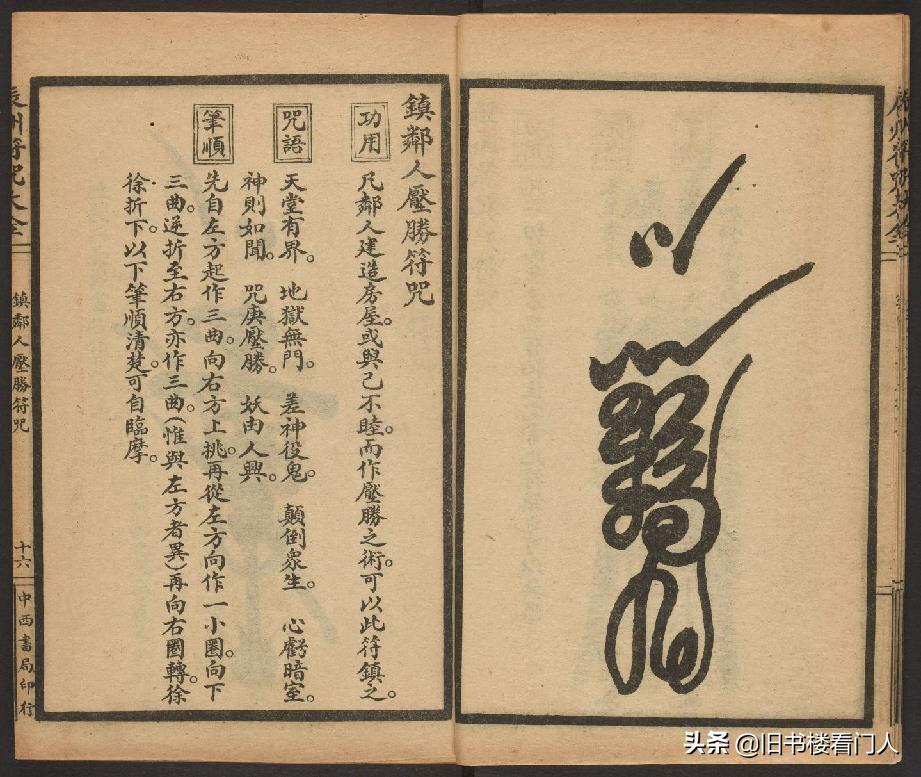 鎮鄰人壓勝符咒
功用
凡鄰人建造房屋。或與己不睦。而作壓勝之術。可以此符鎮之。
咒語
天堂有界。地獄無門。差神役鬼。顛倒眾生。心虧暗室。
神則如聞。咒庚壓勝。妖由人興。
筆順
先自左方起作三曲。向右方上挑。再從左方向作一小圈。向下
三曲。逆折至右方。亦作三曲。(惟與左方者異)再向右圈轉。徐
徐折下。以下筆順清楚。可自臨摩。
辰州符咒大全
鎮鄰人壓勝符咒
十六
中西書局印行
头条 @旧书楼看门人